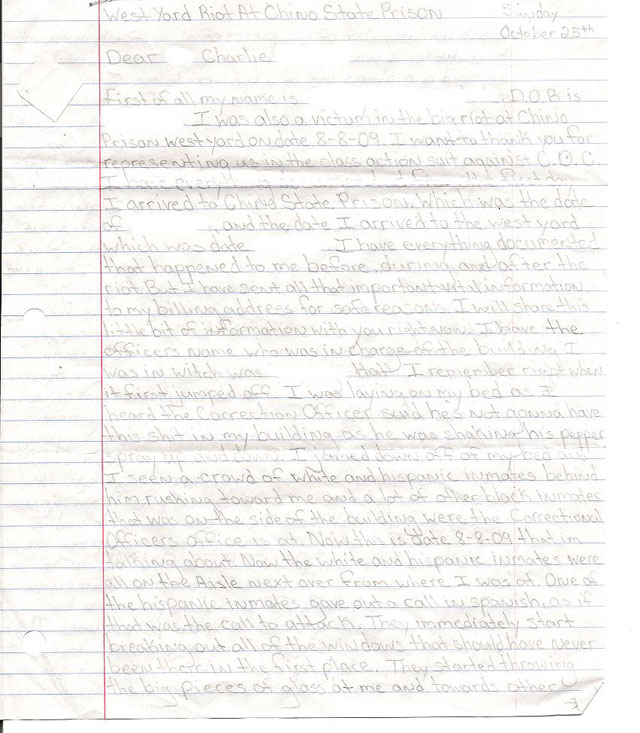 West Yard Riot At Chino State Prison Sunday
October 25th
Dear Charlie
First of all my name is D.O.B is
I was also a victum in the big riot at Chino
Prison west yard on date 8-8-09. I want to thank you for
representing us in the class action suit against C.D.C.
I have every
I arrived to Chino State Prison. Which was the date
of , and the date I arrived to the west yard
which was date I have everything documented
that happened to me before, during, and after the
riot. But I have sent all that important vital information
to my billing address for safe reasons. I will share this
little bit of information with you right now. I have the
officers name who was in charge of the building I
was in witch was Hall I remember right when
it first jumped off. I was laying on my bed as I
heard the Correction Officer said he's not gonna have
this shit in my building as he was shaking his pepper
spray up and down. I jumped down off of my bed and
I seen a crowd of white and hispanic inmates behind
him rushing toward me and a lot of other black inmates
that was on the side of the building were the Correctional
Officers office is at. Now this is date 8-8-09 that im
talking about. Now the white and hispanic inmates were
all on the Aisle next over from where I was at. One of
the hispanic inmates gave out a call in spanish, as if
that was the call to attack. They immediately start
breaking out all of the windows that should have never
been there in the first place. They started throwing
the big pieces of glass at me and towards other